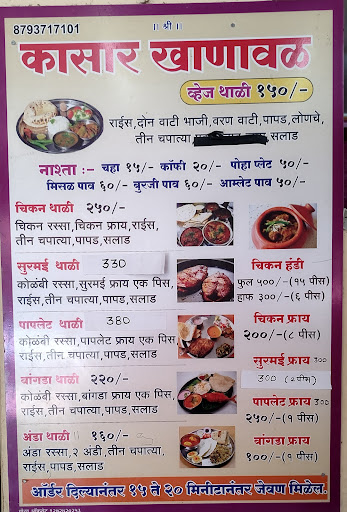 8793717101
॥ श्री ॥
कासार खाणावळ
व्हेज थाळी १५०/-
राईस,दोन वाटी भाजी,वरण वाटी,पापड,लोणचे,
तीन चपात्या सलाड
नाश्ता :- चहा १५/- कॉफी २०/- पोहा प्लेट ५०/-
मिसळ पाव ६०/- बुरजी पाव ६०/- आम्लेट पाव ५०/-
चिकन थाळी २५०/-
चिकन रस्सा,चिकन फ्राय,राईस,
तीन चपात्या,पापड,सलाड
सुरमई थाळी 330
कोळंबी रस्सा,सुरमई फ्राय एक पिस,
राईस,तीन चपात्या,पापड,सलाड
पापलेट थाळी 380
कोळंबी रस्सा,पापलेट फ्राय एक पिस,
राईस,तीन चपात्या,पापड,सलाड
बांगडा थाळी २२०/-
कोळंबी रस्सा,बांगडा फ्राय एक पिस,
राईस,तीन चपात्या,पापड,सलाड
अंडा थाळी १६०/-
अंडा रस्सा,२ अंडी,तीन चपात्या,
राईस,पापड,सलाड
चिकन हंडी
फुल ५००/-(१५ पीस)
हाफ ३००/-(६ पीस)
चिकन फ्राय
२००/-(८ पीस)
सुरमई फ्राय 300
300 (२पीस)
पापलेट फ्राय 300
२५०/-(१ पीस)
बांगडा फ्राय
१००/-(१ पीस)
ऑर्डर दिल्यानंतर १५ ते २० मिनीटानंतर जेवण मिळेल.